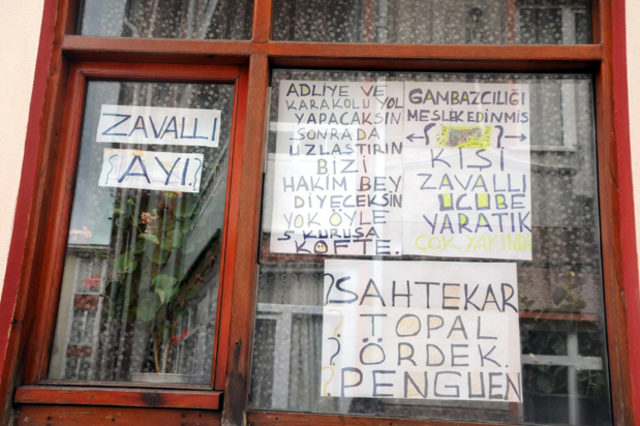 ZAVALLI
AYI.
ADLİYE VE
KARAKOLU YOL
YAPACAKSIN
SONRADA
UZLAŞTIRIN
BİZİ
HAKİM BEY
DİYECEKSİN
YOK ÖYLE
5 KURUŞA
KÖFTE.
GAMBAZCILIĞI
MESLEK EDİNMİŞ
KİŞİ
ZAVALLI
UCUBE
YARATIK
ÇOK YAKINDA
?SAHTEKAR
? TOPAL
? ÖRDEK.
?PENGUEN